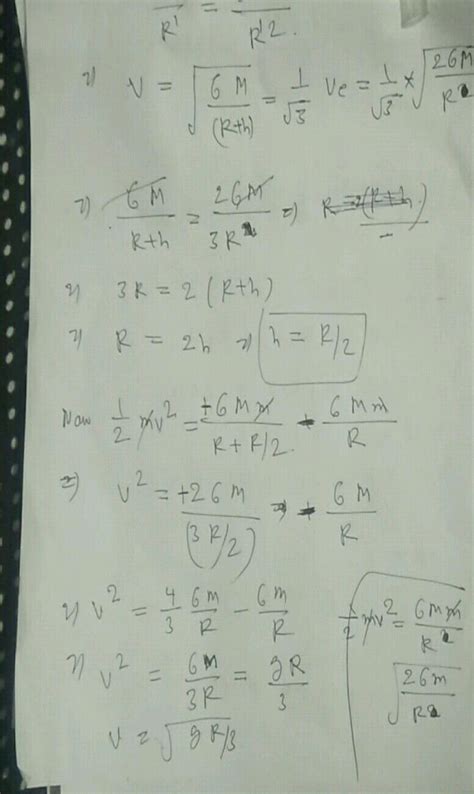 R' = R'2.
=) V = √(GM/(R+h)) = 1/√3 Ve = 1/√3 * √(2GM/R)
=) GM/(R+h) = 2GM/3R =)
=) 3R = 2(R+h)
=) R = 2h =) h = R/2
Now 1/2 mv² = +GMm/(R+R/2) - GMm/R
=) v² = +2GM/(3R/2) - GM/R
=) v² = 4/3 GM/R - GM/R
=) v² = GM/3R = gR/3
v = √(gR/3)
1/2 mv² = GMm/R
√(2Gm/R)